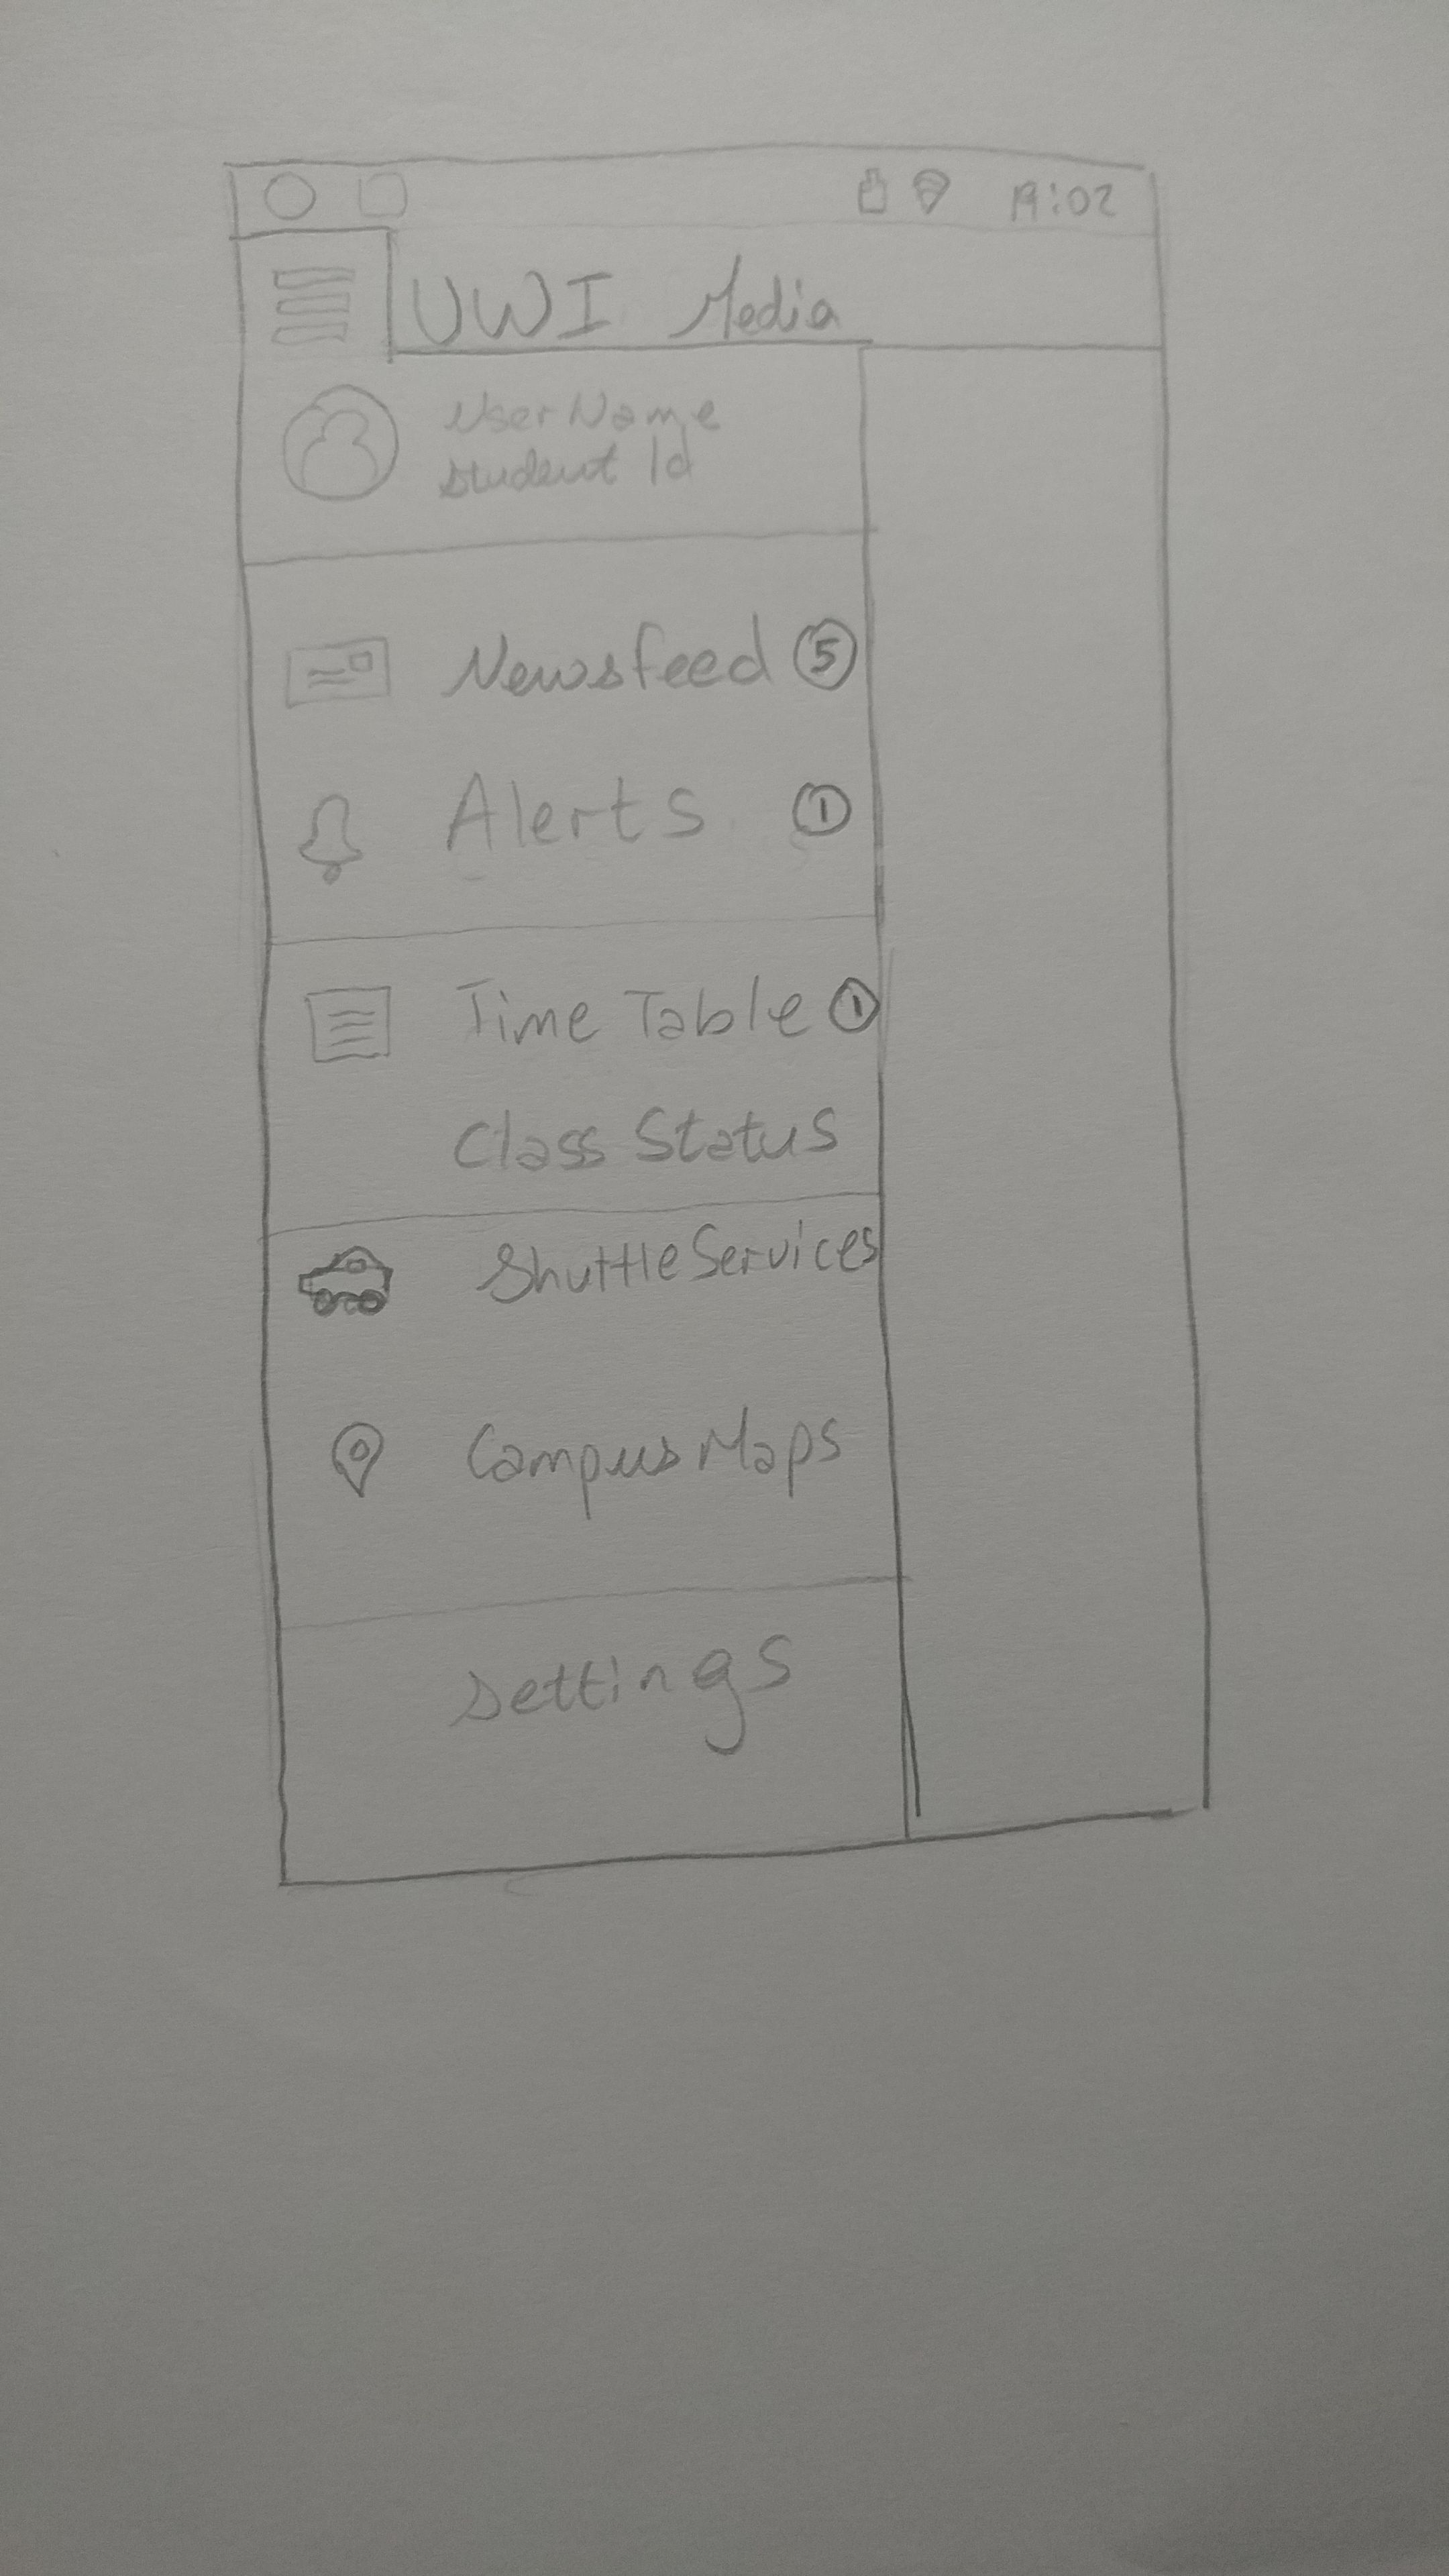 19:02
UWI Media
UserName
Student Id
Newsfeed 5
Alerts 1
Time Table 1
Class Status
Shuttle Services
Campus Maps
Settings